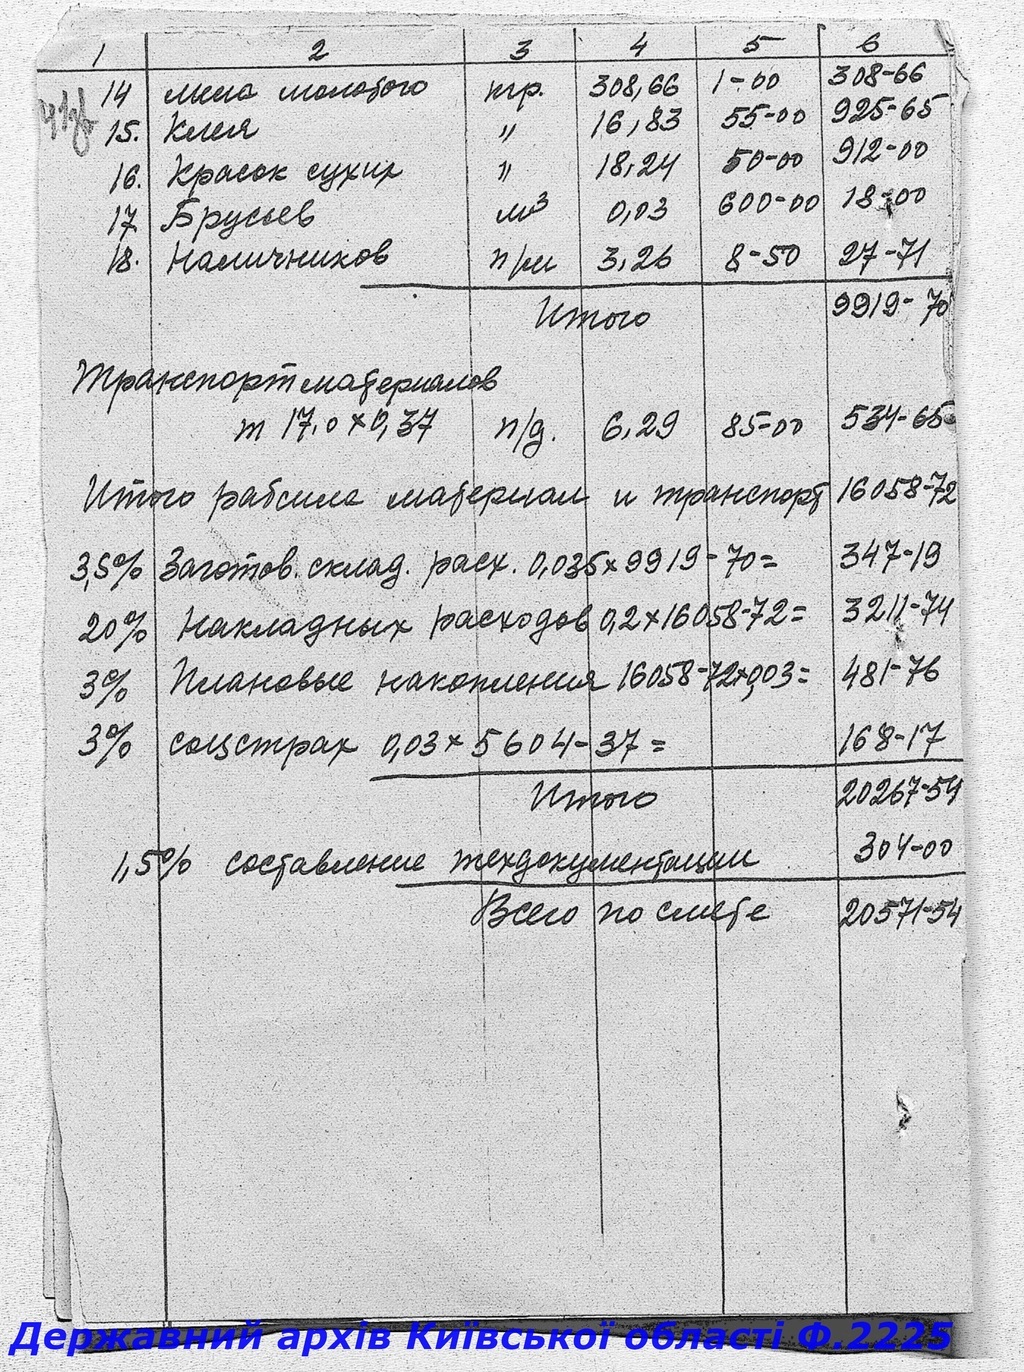 1 2 3 4 5 6
14 мела молотого кгр. 308,66 1-00 308-66
15. Клея " 16,83 55-00 925-65
16. Красок сухих " 18,24 50-00 912-00
17 Брусьев м3 0,03 600-00 18-00
18. Наличников п/м 3,26 8-50 27-71
Итого 9919-70
Транспорт материалов
т 17,0 x 0,37 п/д. 6,29 85-00 534-65
Итого рабсила материал и транспорт 16058-72
3,5% Заготов. склад. расх. 0,035 x 9919-70 = 347-19
20% Накладных расходов 0,2 x 16058-72 = 3211-74
3% Плановые накопления 16058-72 x 0,03 = 481-76
3% соцстрах 0,03 x 5604-37 = 168-17
Итого 20267-54
1,5% составление техдокументации 304-00
Всего по смете 20571-54
Державний архів Київської області Ф.2225